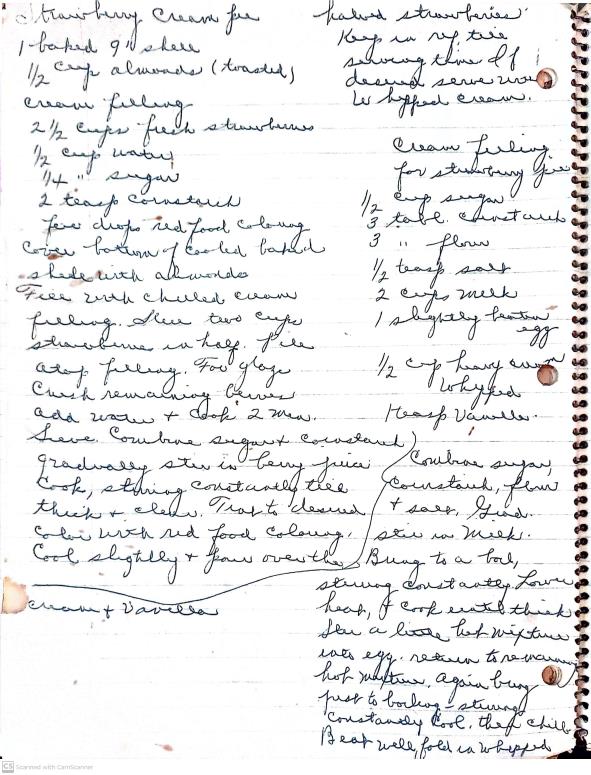 Strawberry Cream Pie
1 baked 9" shell
1/2 cup almonds (toasted)
cream filling
2 1/2 cups fresh strawberries
1/2 cup water
1/4 " sugar
2 teasp cornstarch
few drops red food coloring
Cover bottom of cooled baked
shell with almonds
Fill with chilled cream
filling. Slice two cups
strawberries in half. Pile
atop filling. For glaze
Crush remaining berries
add water + cook 2 min.
Sieve. Combine sugar + cornstarch
gradually stir in berry juice
Cook, stirring constantly till
thick + clear. Tint to desired
color with red food coloring.
Cool slightly + pour over the
halved strawberries.
Keep in ref till
serving time If
desired serve with
Whipped cream.
Cream filling
for strawberry pie
1/2 cup sugar
3 tabl. cornstarch
3 " flour
1/2 teasp salt
2 cups milk
1 slightly beaten
egg
1/2 cup heavy cream
Whipped
1 teasp Vanilla.
Combine sugar,
Cornstarch, flour
+ salt, Grad.
stir in Milk.
Bring to a boil,
stirring constantly Lower
heat, & cook until thick
Stir a little hot mixture
into egg. return to remaining
hot mixture. Again bring
just to boiling - stirring
constantly Cool. then chill
Beat well, fold in whipped
cream + Vanilla
CS Scanned with CamScanner